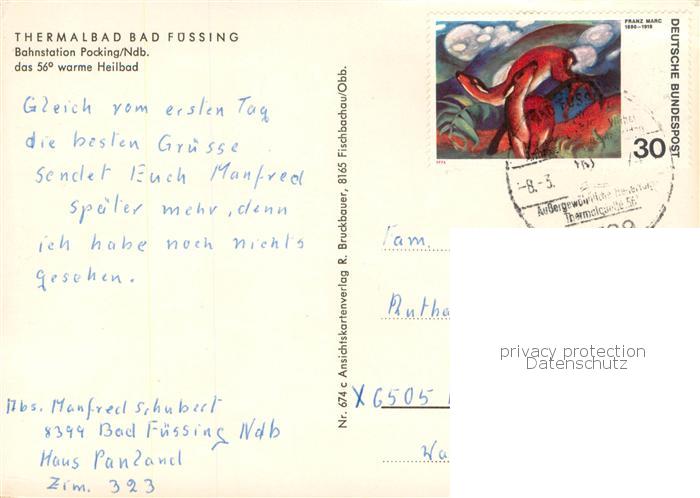 THERMALBAD BAD FÜSSING
Bahnstation Pocking/Ndb.
das 56° warme Heilbad
Gleich vom ersten Tag
die besten Grüsse
sendet Euch Manfred
später mehr, denn
ich habe noch nichts
gesehen.
Abs. Manfred Schubert
8399 Bad Füssing Ndb
Haus Panland
Zim. 323
Nr. 674 c Ansichtskartenverlag R. Bruckbauer, 8165 Fischbachau/Obb.
FRANZ MARC
1880-1916
DEUTSCHE BUNDESPOST
30
1974
BAD FÜSSING
-8.-3.
Außergewöhnliche
Thermalquelle 56°
Fam.
X6505
privacy protection
Datenschutz